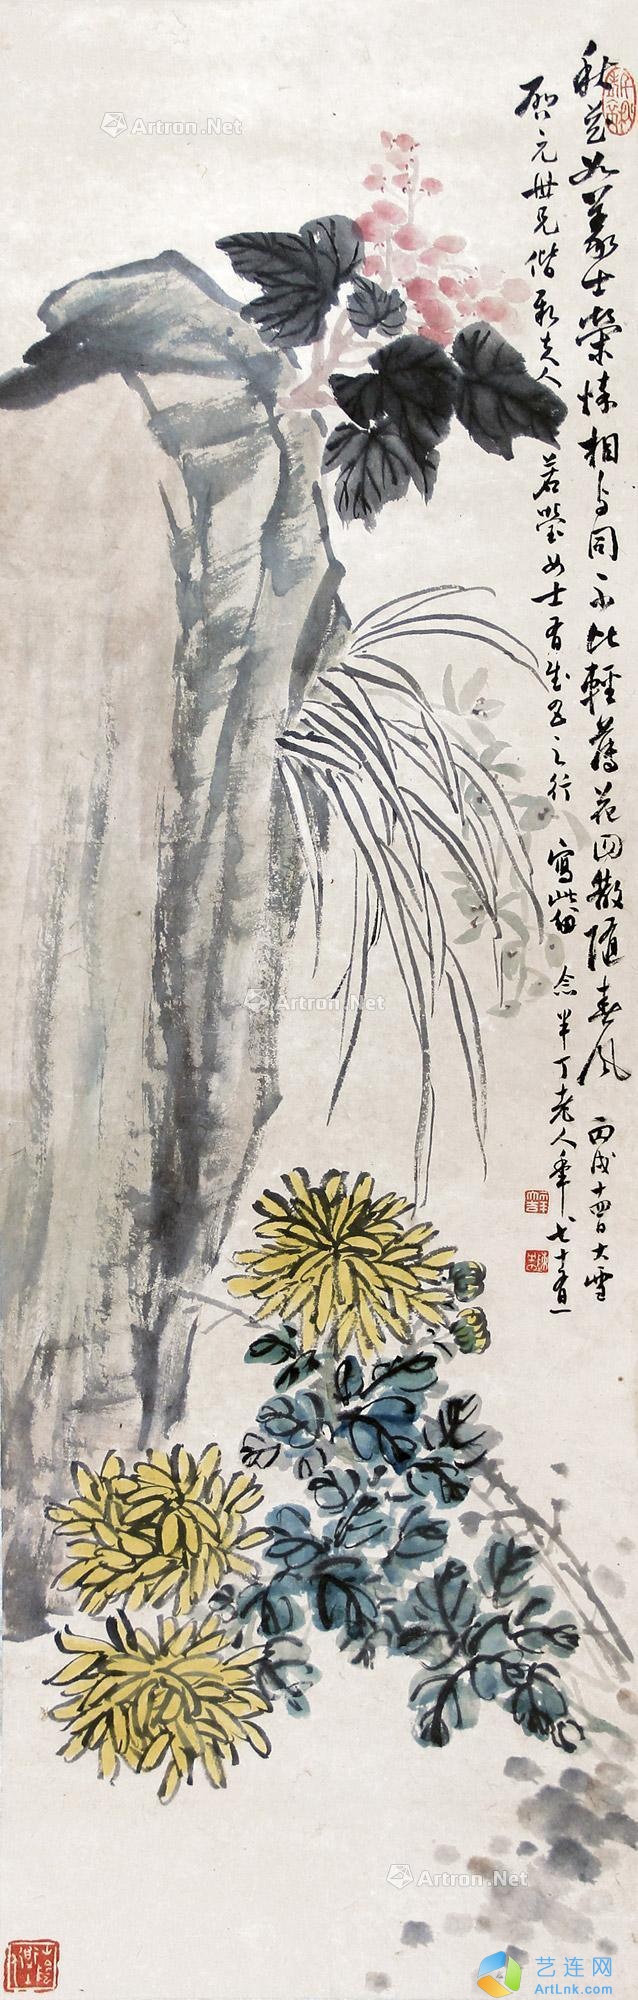 秋花如義士榮悴相與同不比輕薄花四散隨春風
丙戌十四日大雪
啓元世兄偕新夫人若瑩女士有成都之行寫此紉念半丁老人年七十有一
Artron.Net
Artron.Net
Artron.Net
艺连网
ArtLnk.com